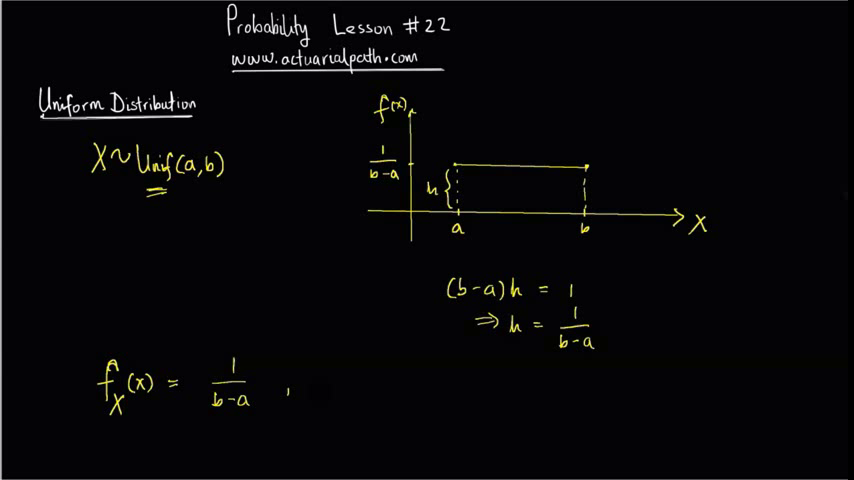 Probability Lesson #22
www.actuarialpath.com
Uniform Distribution
X ~ Unif(a,b)
f(x)
1/(b-a)
h {
a
b
X
(b-a)h = 1
⇒ h = 1/(b-a)
f_X(x) = 1/(b-a) ,